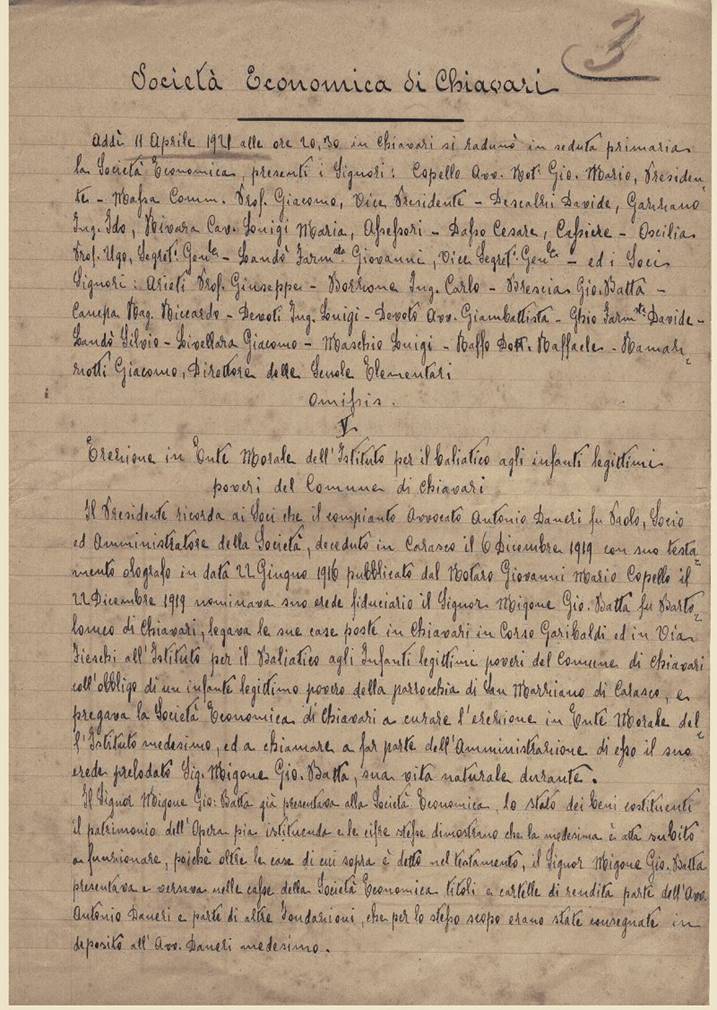 3
Società Economica di Chiavari
Addì 11 Aprile 1921 alle ore 20,30 in Chiavari si radunò in seduta primaria
la Società Economica, presenti i Signori: Copello Avv. Not. Gio. Mario, Presiden-
te - Massa Comm. Prof. Giacomo, Vice Presidente - Descalzi Davide, Garzano
Ing. Ido, Rivara Cav. Luigi Maria, Assessori - Dasso Cesare, Cassiere - Oscilia
Prof. Ugo, Segret. Genle - Landò Farmsta Giovanni, Vice Segret. Genle - ed i Soci
Signori: Arieti Prof. Giuseppe - Borzone Ing. Carlo - Brescia Gio. Batta -
Canepa Rag. Riccardo - Devoti Ing. Luigi - Devoto Avv. Giambattista - Ghio Farmsta Davide -
Landò Silvio - Livellara Giacomo - Maschio Luigi - Raffo Dott. Raffaele - Ramari-
notti Giacomo, Direttore delle Scuole Elementari
Omissis.
V
Erezione in Ente Morale dell'Istituto per il baliatico agli infanti legittimi
poveri del Comune di Chiavari
Il Presidente ricorda ai Soci che il compianto Avvocato Antonio Daneri fu Paolo, Socio
ed Amministratore della Società, deceduto in Carasco il 6 Dicembre 1919 con suo testa-
mento olografo in data 22 Giugno 1916 pubblicato dal Notaro Giovanni Mario Copello il
22 Dicembre 1919 nominava suo erede fiduciario il Signor Migone Gio. Batta fu Barto-
lomeo di Chiavari, legava le sue case poste in Chiavari in Corso Garibaldi ed in Via
Fieschi all'Istituto per il Baliatico agli Infanti legittimi poveri del Comune di Chiavari
coll'obbligo di un infante legittimo povero della parrocchia di San Marziano di Carasco, e
pregava la Società Economica di Chiavari a curare l'erezione in Ente Morale del-
l'Istituto medesimo, ed a chiamare a far parte dell'Amministrazione di esso il suo
erede prelodato Sig. Migone Gio. Batta, sua vita naturale durante.
Il Signor Migone Gio. Batta già presentava alla Società Economica, lo stato dei beni costituenti
il patrimonio dell'Opera pia istituenda e le cifre stesse dimostrano che la medesima è atta subito
a funzionare, poichè oltre le case di cui sopra è detto nel testamento, il Signor Migone Gio. Batta
presentava e versava nelle casse della Società Economica titoli e cartelle di rendita parte dell'Avv.
Antonio Daneri e parte di altre Fondazioni, che per lo stesso scopo erano state consegnate in
deposito all'Avv. Daneri medesimo.